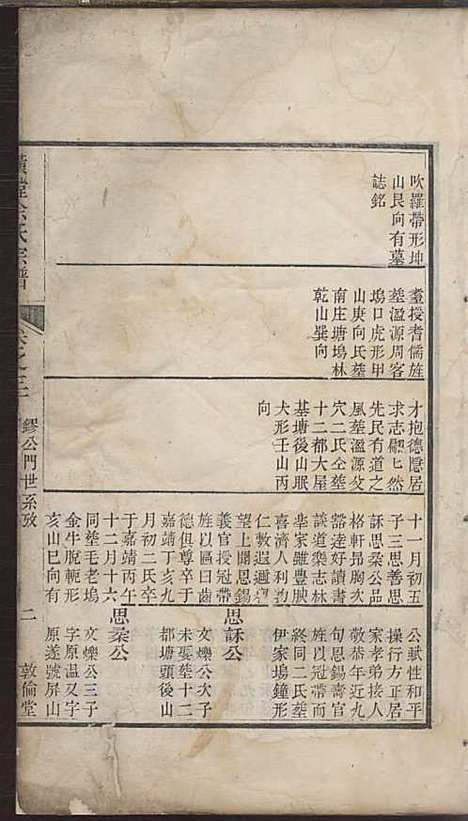 吹羅帶形坤
山艮向有墓
誌銘
耋授耆儒旌
塟溫源周客
塢口虎形甲
山庚向氏塟
南庄塘塢林
乾山巽向
才抱德隱居
求志儼匕然
先民有道之
風塟溫源父
穴二氏仝塟
十二都大屋
基塘後山眠
犬形壬山丙
向
十一月初五
子三思善思
訴思棻公品
格軒昂胸次
豁達好讀書
談道樂志林
泉家雖豊腴
喜濟人利物
仁敦遐邇
望上聞恩錫
義官授冠帶
旌以區曰齒
德俱尊卒于
嘉靖丁亥九
月初二氏卒
于嘉靖丙午
十二月十六
同塟毛老塢
金牛脫軛形
亥山巳向有
公賦性和平
操行方正居
家孝弟接人
敬恭年近九
旬恩錫壽官
旌以冠帶而
終同二氏塟
伊家塢鐘形
思訴公
文爍公次子
未娶塟十二
都塘頭後山
思棻公
文爍公三子
字原溫又字
原遂號屏山
氏宗譜
鏐公門世系攷
二
敦倫堂